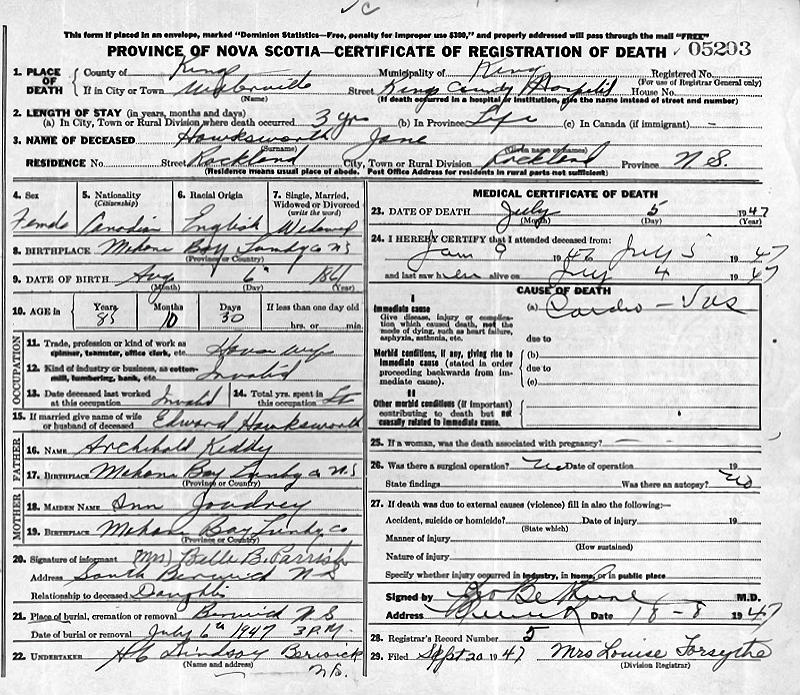 This form if placed in an envelope, marked "Dominion Statistics—Free, penalty for improper use $300," and properly addressed will pass through the mail "FREE"
PROVINCE OF NOVA SCOTIA—CERTIFICATE OF REGISTRATION OF DEATH 05203
1. PLACE OF DEATH County of Kings Municipality of Kings Registered No.
(For use of Registrar General only)
If in City or Town Street Kings County Hospital House No.
(Name) (If death occurred in a hospital or institution, give the name instead of street and number)
2. LENGTH OF STAY (in years, months and days)
(a) In City, Town or Rural Division where death occurred 3 yrs (b) In Province Life (c) In Canada (if immigrant) —
3. NAME OF DECEASED Hawksworth Jane
(Surname) (Given name or names)
RESIDENCE No. Street Rockland City, Town or Rural Division Rockland Province N.S.
(Residence means usual place of abode. Post Office Address for residents in rural parts not sufficient)
4. Sex 5. Nationality (Citizenship) 6. Racial Origin 7. Single, Married, Widowed or Divorced (write the word)
Female Canadian English Widowed
8. BIRTHPLACE Mahone Bay Lundy Co NS
(Province or Country)
9. DATE OF BIRTH Aug 6 1861
(Month) (Day) (Year)
10. AGE in Years Months Days If less than one day old
10 30 hrs. or min.
OCCUPATION
11. Trade, profession or kind of work as spinner, teamster, office clerk, etc. House wife
12. Kind of industry or business, as cotton-mill, lumbering, bank, etc. Invalid
13. Date deceased last worked at this occupation Invalid 14. Total yrs. spent in this occupation
15. If married give name of wife or husband of deceased Edward Hawksworth
FATHER
16. NAME Archibald Keddy
17. BIRTHPLACE Mahone Bay Lundy Co N S
(Province or Country)
MOTHER
18. MAIDEN NAME Ann Joudrey
19. BIRTHPLACE Mahone Bay Lundy Co
(Province or Country)
20. Signature of informant (Mrs) Belle B. Parrish
Address South Berwick N S
Relationship to deceased Daughter
21. Place of burial, cremation or removal Berwick N.S
Date of burial or removal July 6th 1947 3 P.M.
22. UNDERTAKER Lindsay Berwick N.S.
(Name and address)
MEDICAL CERTIFICATE OF DEATH
23. DATE OF DEATH July 5 1947
(Month) (Day) (Year)
24. I HEREBY CERTIFY that I attended deceased from:
Jan 9 1946 July 5 1947
and last saw her alive on July 4 1947
CAUSE OF DEATH
I
Immediate cause (a) Cardio —
Give disease, injury or complication which caused death, not the mode of dying, such as heart failure, asphyxia, asthenia, etc.
due to
Morbid conditions, if any, giving rise to immediate cause (stated in order proceeding backwards from immediate cause).
(b)
due to
(c)
II
Other morbid conditions (if important) contributing to death but not causally related to immediate cause.
25. If a woman, was the death associated with pregnancy?
26. Was there a surgical operation? No Date of operation 19
State findings Was there an autopsy? No
27. If death was due to external causes (violence) fill in also the following:—
Accident, suicide or homicide? Date of injury 19
(State which)
Manner of injury
(How sustained)
Nature of injury
Specify whether injury occurred in industry, in home, or in public place
Signed by M.D.
Address Berwick Date 18-8 1947
28. Registrar's Record Number 5
29. Filed Sept 20 1947 Mrs Louise Forsythe
(Division Registrar)